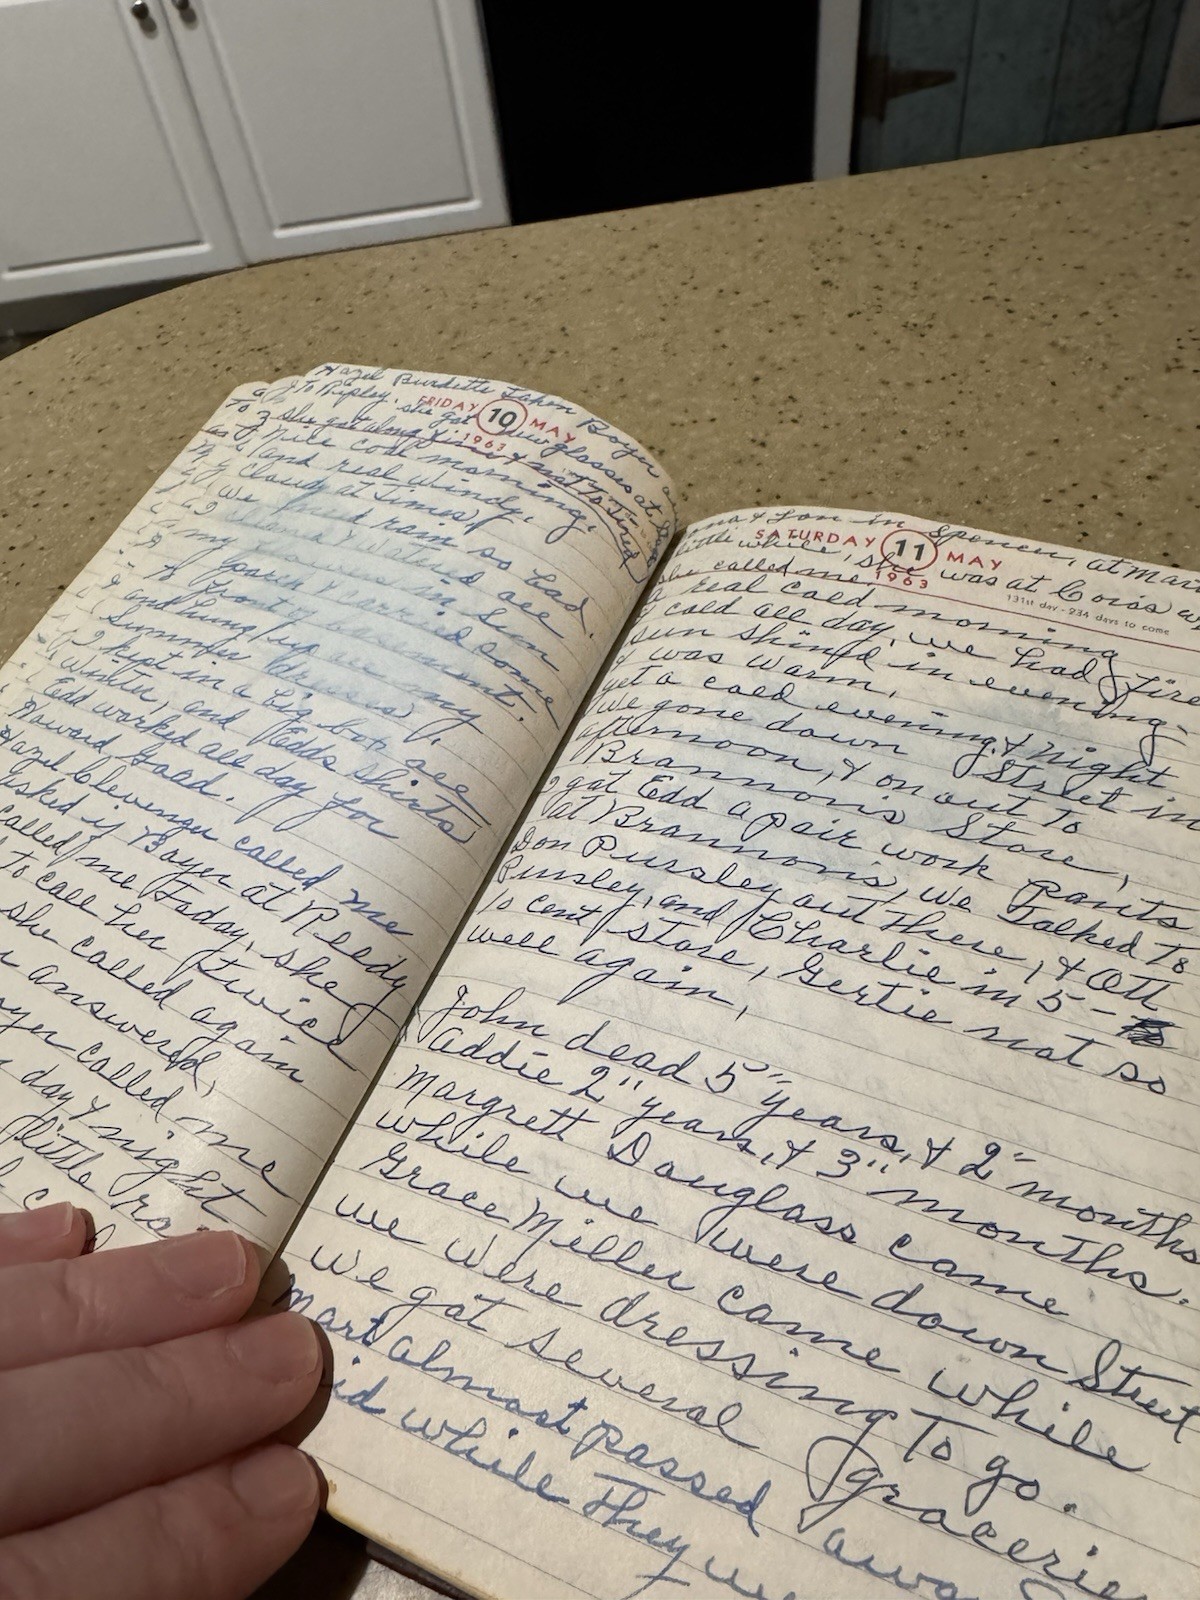 Hazel Burdette taken Boyer
To Ripley. she got new glasses at
FRIDAY 10 MAY
1963
she got along fine & not so Tired
Nice cool morning.
and real windy.
cloudy at times,
We need rain so bad.
I cleaned & watered all
my flowers in Sun
Porch & carried some
To front
and hung up all my
Summer dresses
I kept in a big box all
Winter, and Edds shirts
Edd worked all day for
Howard Good.
Hazel Clevenger called me
asked if Boyer at Reedy
called me Today, she
To call her twice
she called again
answered,
called me
day & night
little
SATURDAY 11 MAY
1963
131st day - 234 days to come
& Son in Spencer, at Mart
little while, she was at Cora's
she called me.
a real cold morning
& cold all day, we had fire
sun shined in evening
& was warm.
yet a cold evening & night
We gone down Street in
afternoon, & on out To
Brannon's Store,
I got Edd a pair work Pants
at Brannon's, We Talked To
Don Pursley out There, & Ott
Pursley, and Charlie in 5-
10 cent Store, Gertie not so
well again,
John dead 5" years, & 2" months
Addie 2" years, & 3" months.
Margrett Douglass came
while we were down Street
Grace Miller came while
we were dressing To go.
We got several groceries
Mart almost passed away
while They